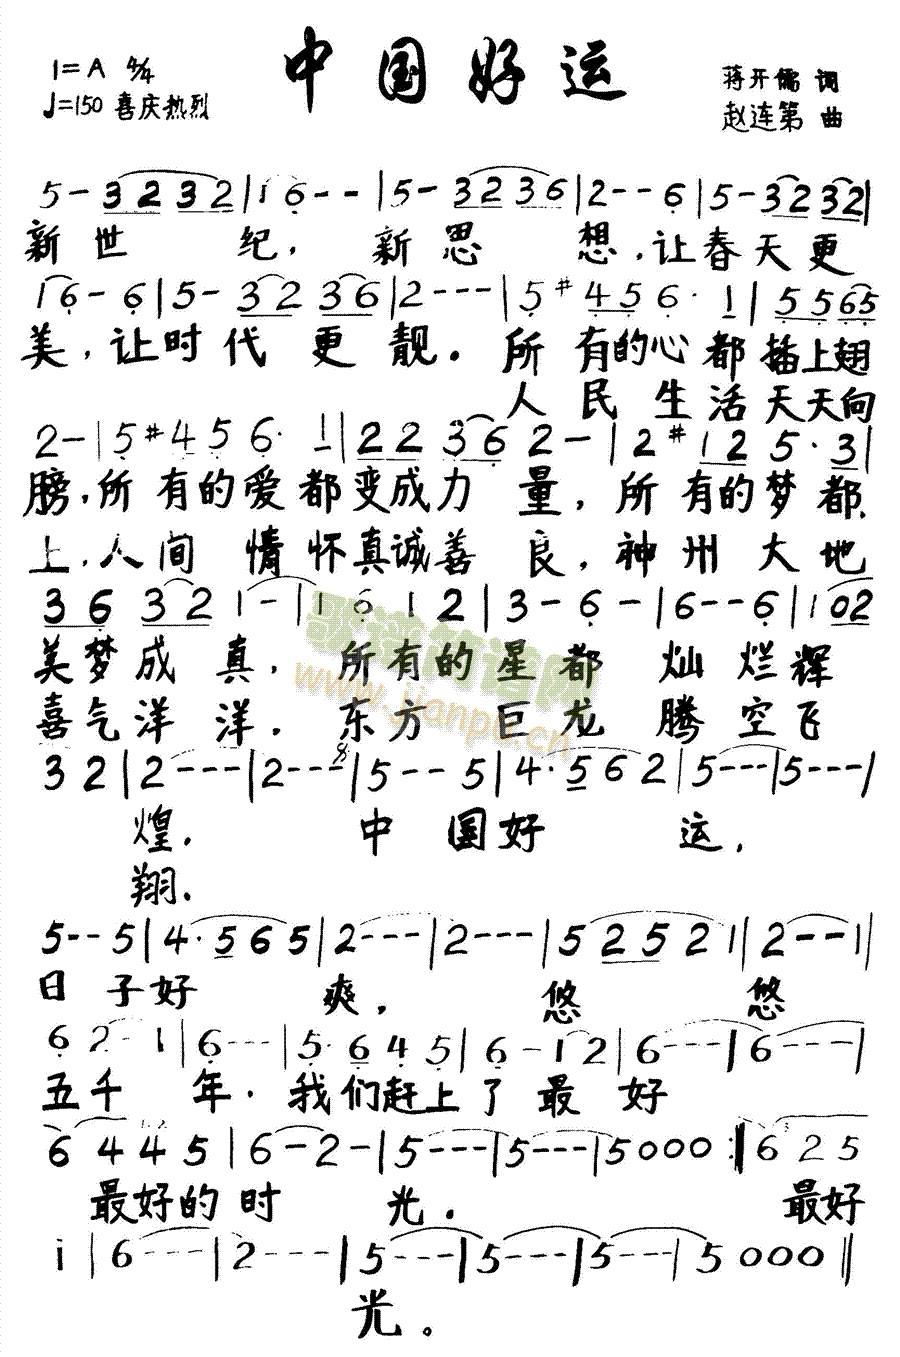 中国好运
1=A 4/4
♩=150 喜庆热烈
蒋开儒 词
赵连第 曲
5- 3 2 3 2 | 1 6-- | 5- 3 2 3 6 | 2--6 | 5- 3 2 3 2 |
新世 纪, 新思 想,让春天更
1 6- 6 | 5- 3 2 3 6 | 2--- | 5 #4 5 6· 1 | 5 5 6 5
美,让时代 更 靓. 所 有的心 都 插上翅
人 民 生 活 天天向
2- | 5 #4 5 6· 1 | 2 2 3 6 2- | 2 #1 2 5· 3 |
膀,所 有的爱 都 变成力 量, 所 有的梦 都
上,人间 情 怀真诚善 良, 神 州 大 地
3 6 3 2 1- | 1 6 1 2 | 3- 6- | 6--6 | 1 02
美梦成 真, 所有的 星 都 灿 烂 辉
喜气洋 洋. 东方 巨 龙 腾 空 飞
歌谱简谱网
www.jianpu.cn
3 2 | 2--- | 2--- | 5--5 | 4· 5 6 2 | 5--- | 5--- |
煌. 中 国 好 运,
翔.
5--5 | 4· 5 6 5 | 2--- | 2--- | 5 2 5 2 1 | 2--1 |
日 子 好 爽, 悠 悠
6 2-1 | 6--- | 5· 6 4 5 | 6-1 2 | 6--- | 6--- |
五千 年. 我们赶上了 最 好
6 4 4 5 | 6-2- | 5--- | 5--- | 5 0 0 0 :| 6 2 5
最好的 时 光. 最好
i | 6--- | 2--- | 5--- | 5--- | 5--- | 5 0 0 0 ||
光。